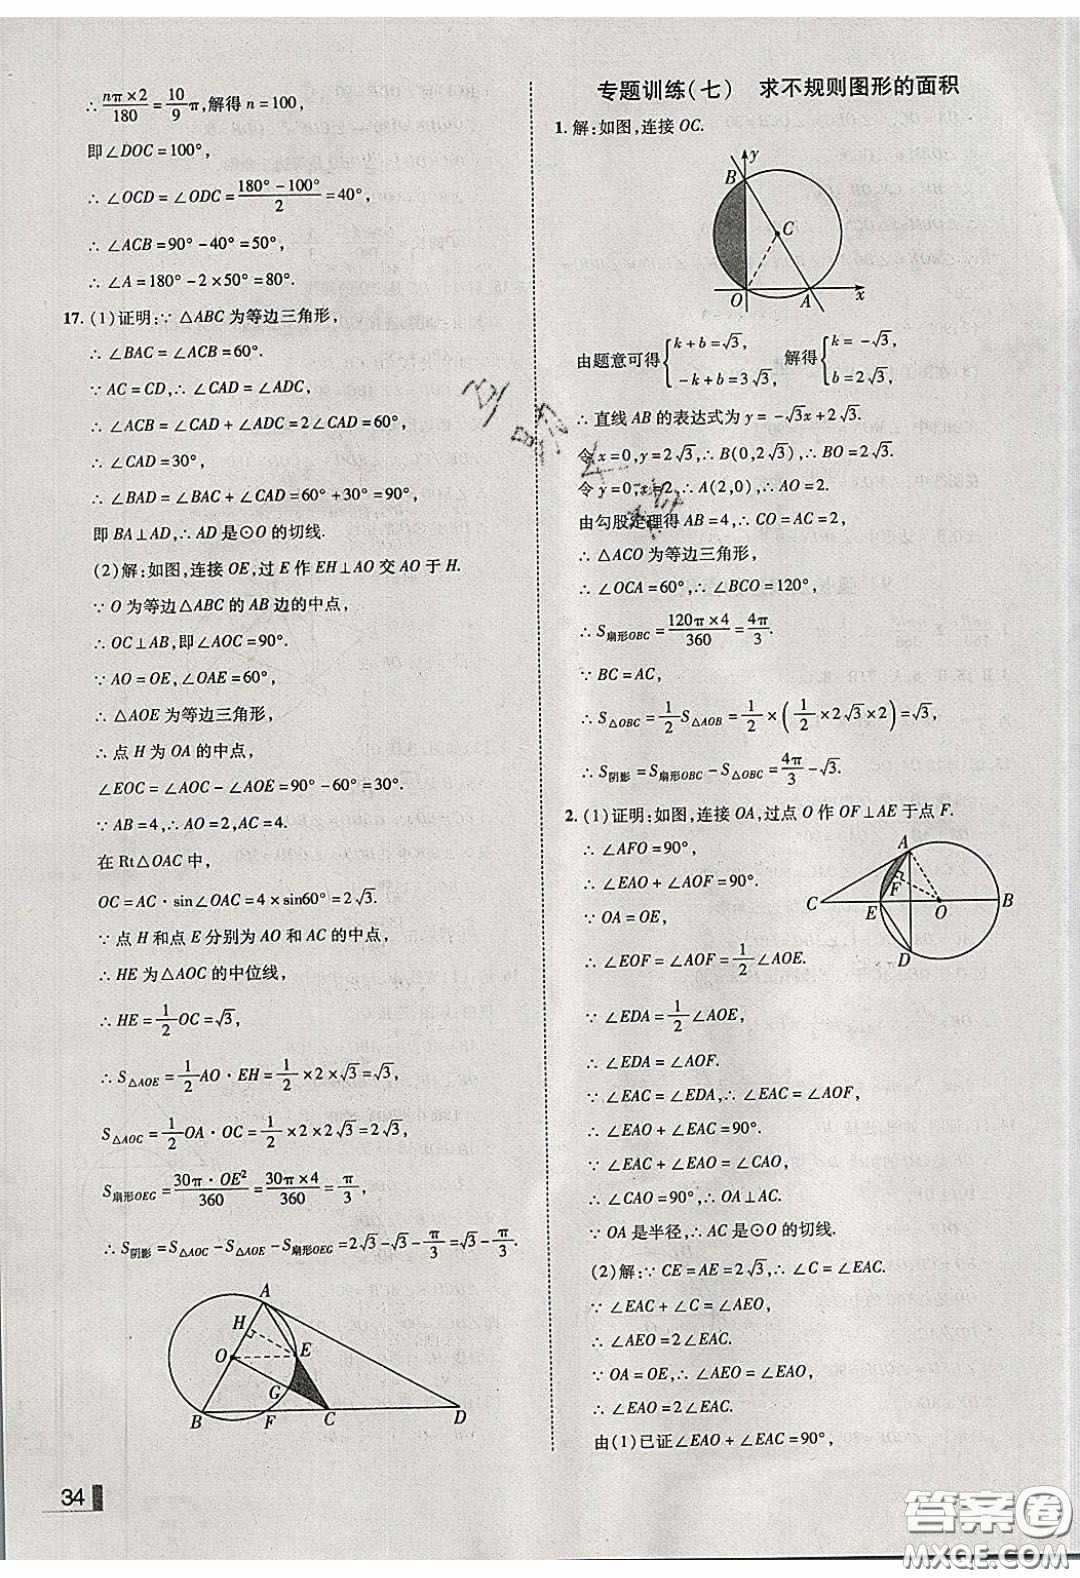 ∴ nπ×2/180 = 10/9 π, 解得 n=100,
即∠DOC=100°,
∴ ∠OCD=∠ODC= (180°-100°)/2 =40°,
∴ ∠ACB=90°-40°=50°,
∴ ∠A=180°-2×50°=80°.
17. (1)证明:∵ △ABC 为等边三角形,
∴ ∠BAC=∠ACB=60°.
∵ AC=CD,∴ ∠CAD=∠ADC,
∴ ∠ACB=∠CAD+∠ADC=2∠CAD=60°,
∴ ∠CAD=30°,
∴ ∠BAD=∠BAC+∠CAD=60°+30°=90°,
即 BA⊥AD,∴ AD 是⊙O 的切线.
(2)解:如图,连接 OE,过 E 作 EH⊥AO 交 AO 于 H.
∵ O 为等边△ABC 的 AB 边的中点,
∴ OC⊥AB,即∠AOC=90°.
∵ AO=OE,∠OAE=60°,
∴ △AOE 为等边三角形,
∴ 点 H 为 OA 的中点,
∠EOC=∠AOC-∠AOE=90°-60°=30°.
∵ AB=4,∴ AO=2,AC=4.
在 Rt△OAC 中,
OC=AC·sin∠OAC=4×sin60°=2√3.
∵ 点 H 和点 E 分别为 AO 和 AC 的中点,
∴ HE 为△AOC 的中位线,
∴ HE= 1/2 OC=√3,
∴ S△AOE= 1/2 AO·EH= 1/2 ×2×√3=√3,
S△AOC= 1/2 OA·OC= 1/2 ×2×2√3=2√3,
S扇形OEG= 30π·OE²/360 = 30π×4/360 = π/3,
∴ S阴影=S△AOC-S△AOE-S扇形OEG=2√3-√3- π/3 =√3- π/3.
A
H
O
E
G
B F C D
34
专题训练(七) 求不规则图形的面积
1. 解:如图,连接 OC.
y
B
C
O A x
由题意可得{k+b=√3, -k+b=3√3, 解得{k=-√3, b=2√3,
∴ 直线 AB 的表达式为 y=-√3x+2√3.
令 x=0,y=2√3,∴ B(0,2√3),∴ BO=2√3.
令 y=0,x=2,∴ A(2,0),∴ AO=2.
由勾股定理得 AB=4,∴ CO=AC=2,
∴ △ACO 为等边三角形,
∴ ∠OCA=60°,∴ ∠BCO=120°,
∴ S扇形OBC= 120π×4/360 = 4π/3.
∵ BC=AC,
∴ S△OBC= 1/2 S△AOB= 1/2 ×( 1/2 ×2√3×2)=√3,
∴ S阴影=S扇形OBC-S△OBC= 4π/3 -√3.
2. (1)证明:如图,连接 OA,过点 O 作 OF⊥AE 于点 F.
∴ ∠AFO=90°,
∴ ∠EAO+∠AOF=90°.
∵ OA=OE,
∴ ∠EOF=∠AOF= 1/2 ∠AOE.
∵ ∠EDA= 1/2 ∠AOE,
∴ ∠EDA=∠AOF.
∵ ∠EAC=∠EDA,∴ ∠EAC=∠AOF,
∴ ∠EAO+∠EAC=90°.
∵ ∠EAC+∠EAO=∠CAO,
∴ ∠CAO=90°,∴ OA⊥AC.
∵ OA 是半径,∴ AC 是⊙O 的切线.
(2)解:∵ CE=AE=2√3,∴ ∠C=∠EAC.
∵ ∠EAC+∠C=∠AEO,
∴ ∠AEO=2∠EAC.
∵ OA=OE,∴ ∠AEO=∠EAO,
∴ ∠EAO=2∠EAC.
由(1)已证∠EAO+∠EAC=90°,
A
F
C E O B
D
答案圈
MXQE.COM